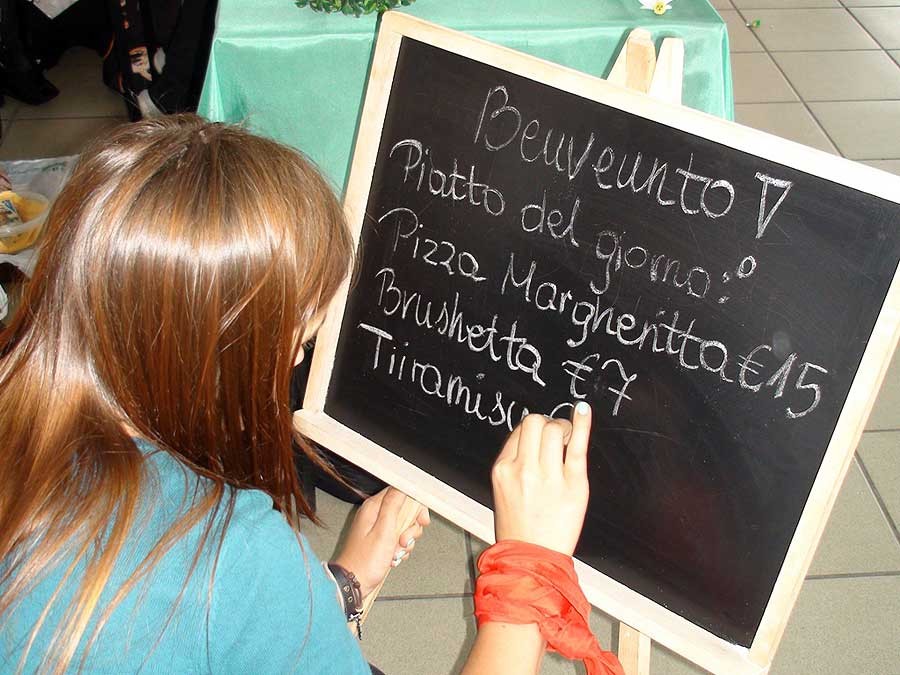 Beuveunto
Piatto del giorno:
Pizza Margheritta €15
Brushetta €7
Tiiramisu